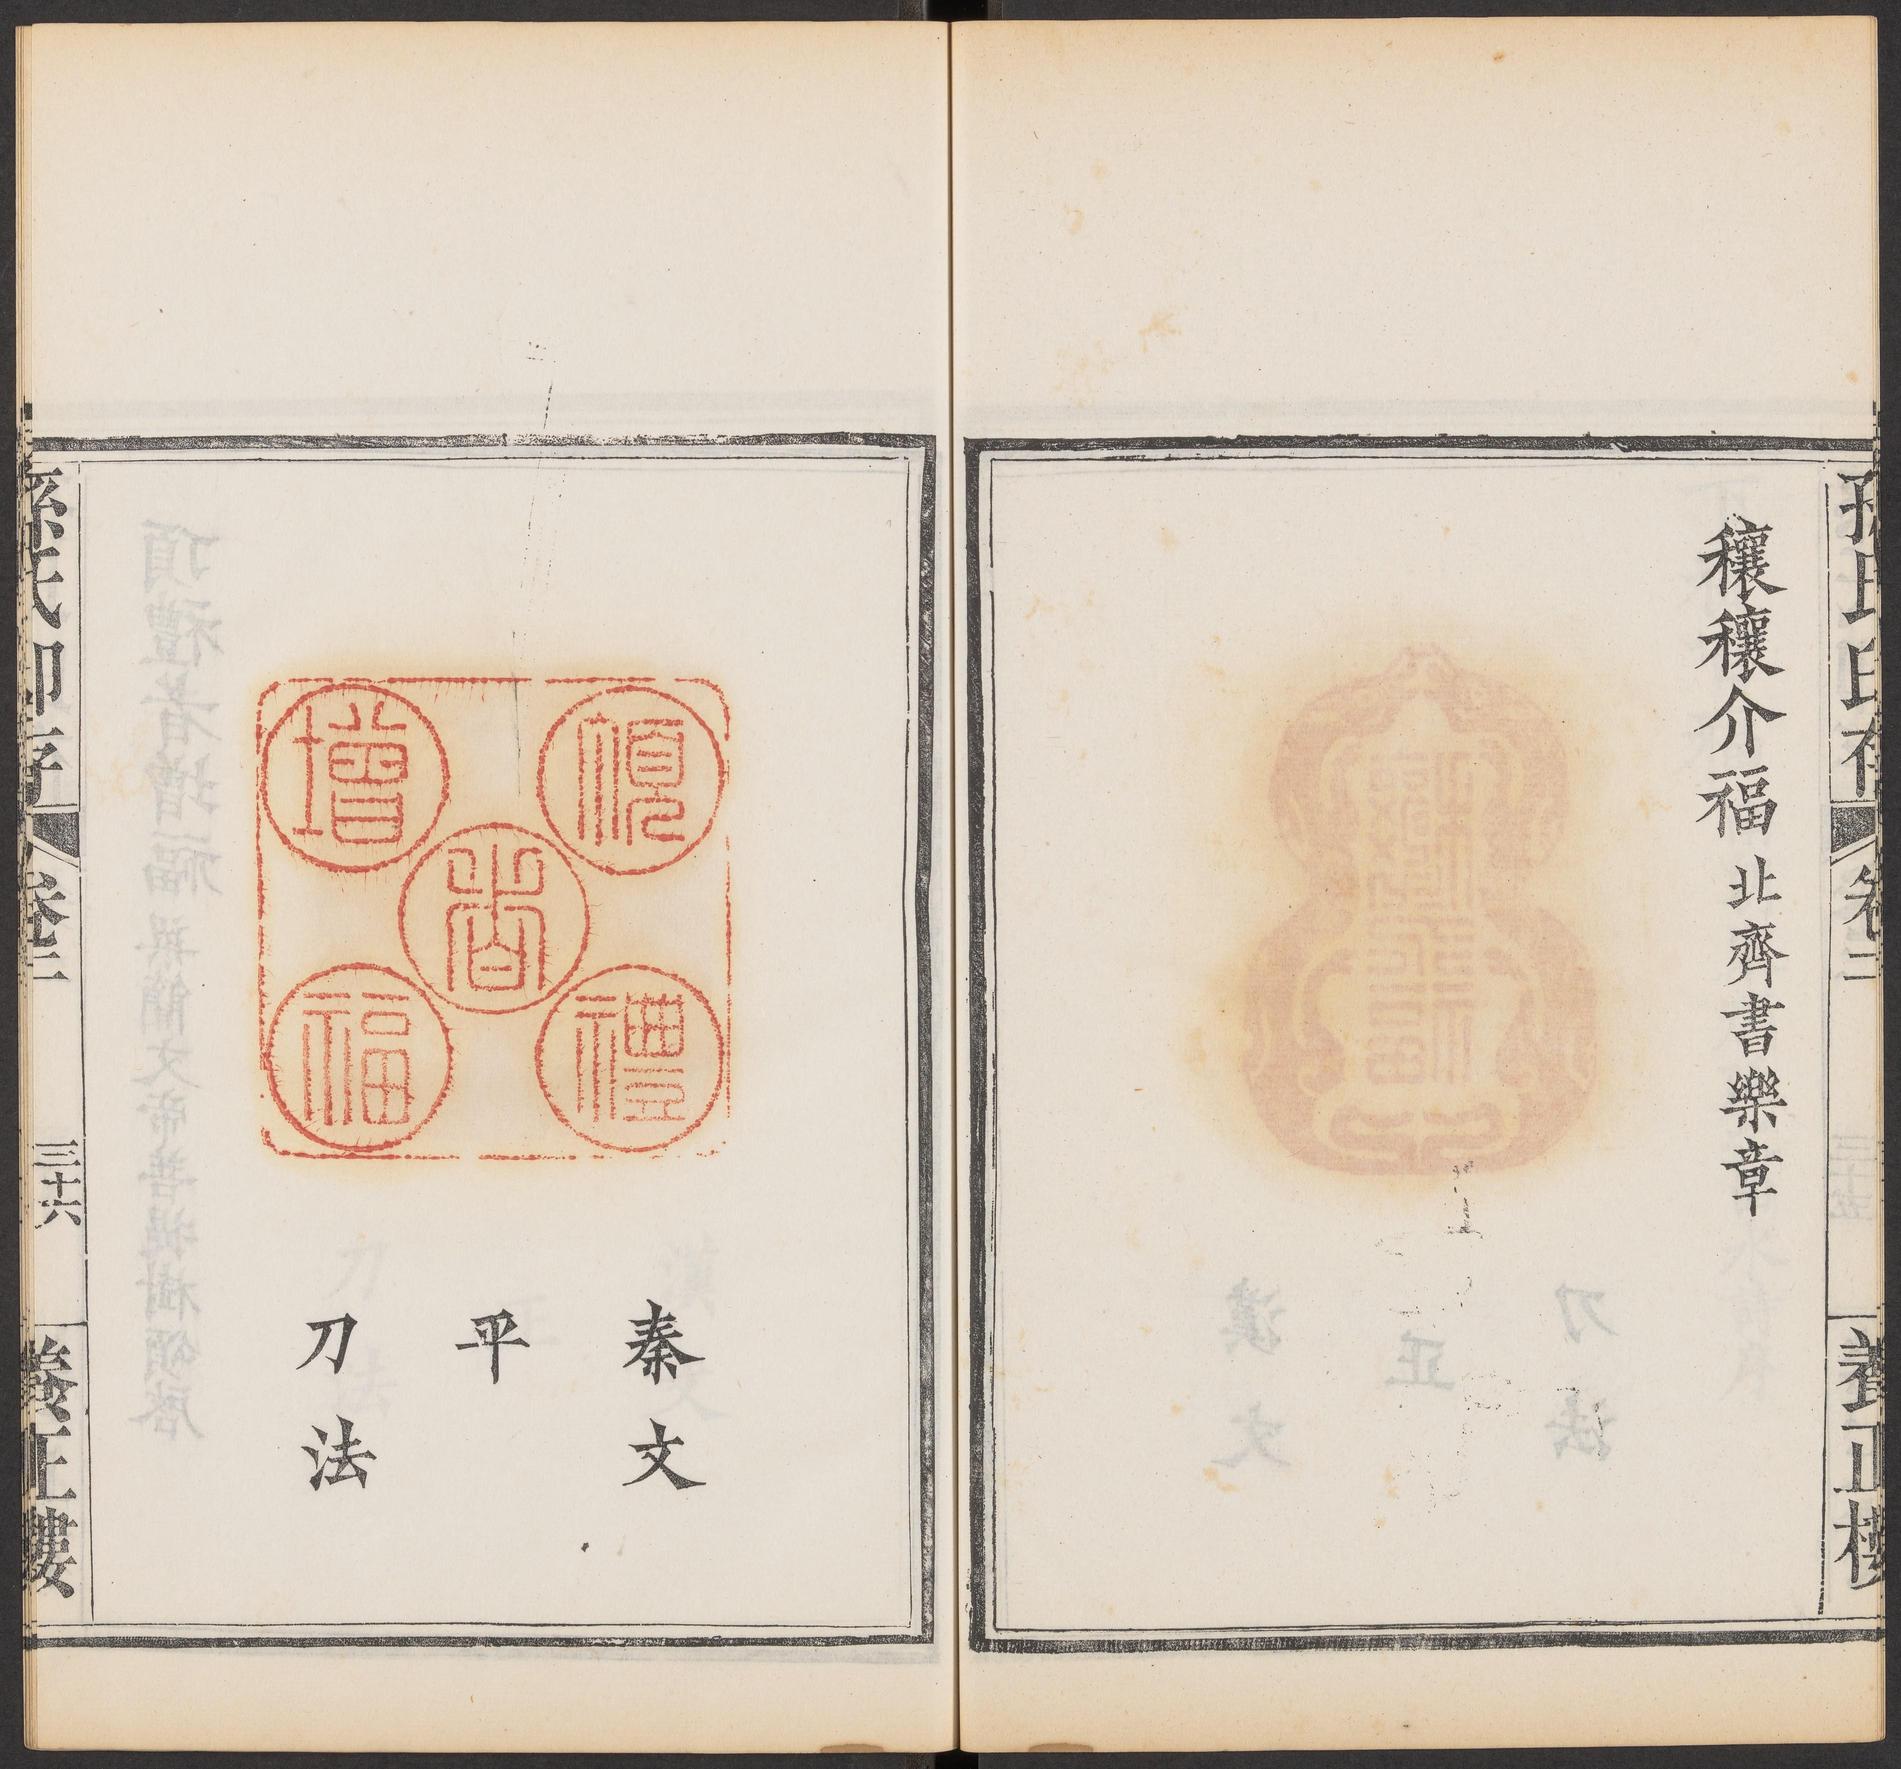 孫氏印存
卷二
養正樓
穰穰介福 北齊書樂章
頂禮者增福
秦文
平
刀法
孫氏印存
卷二
三十六
養正樓